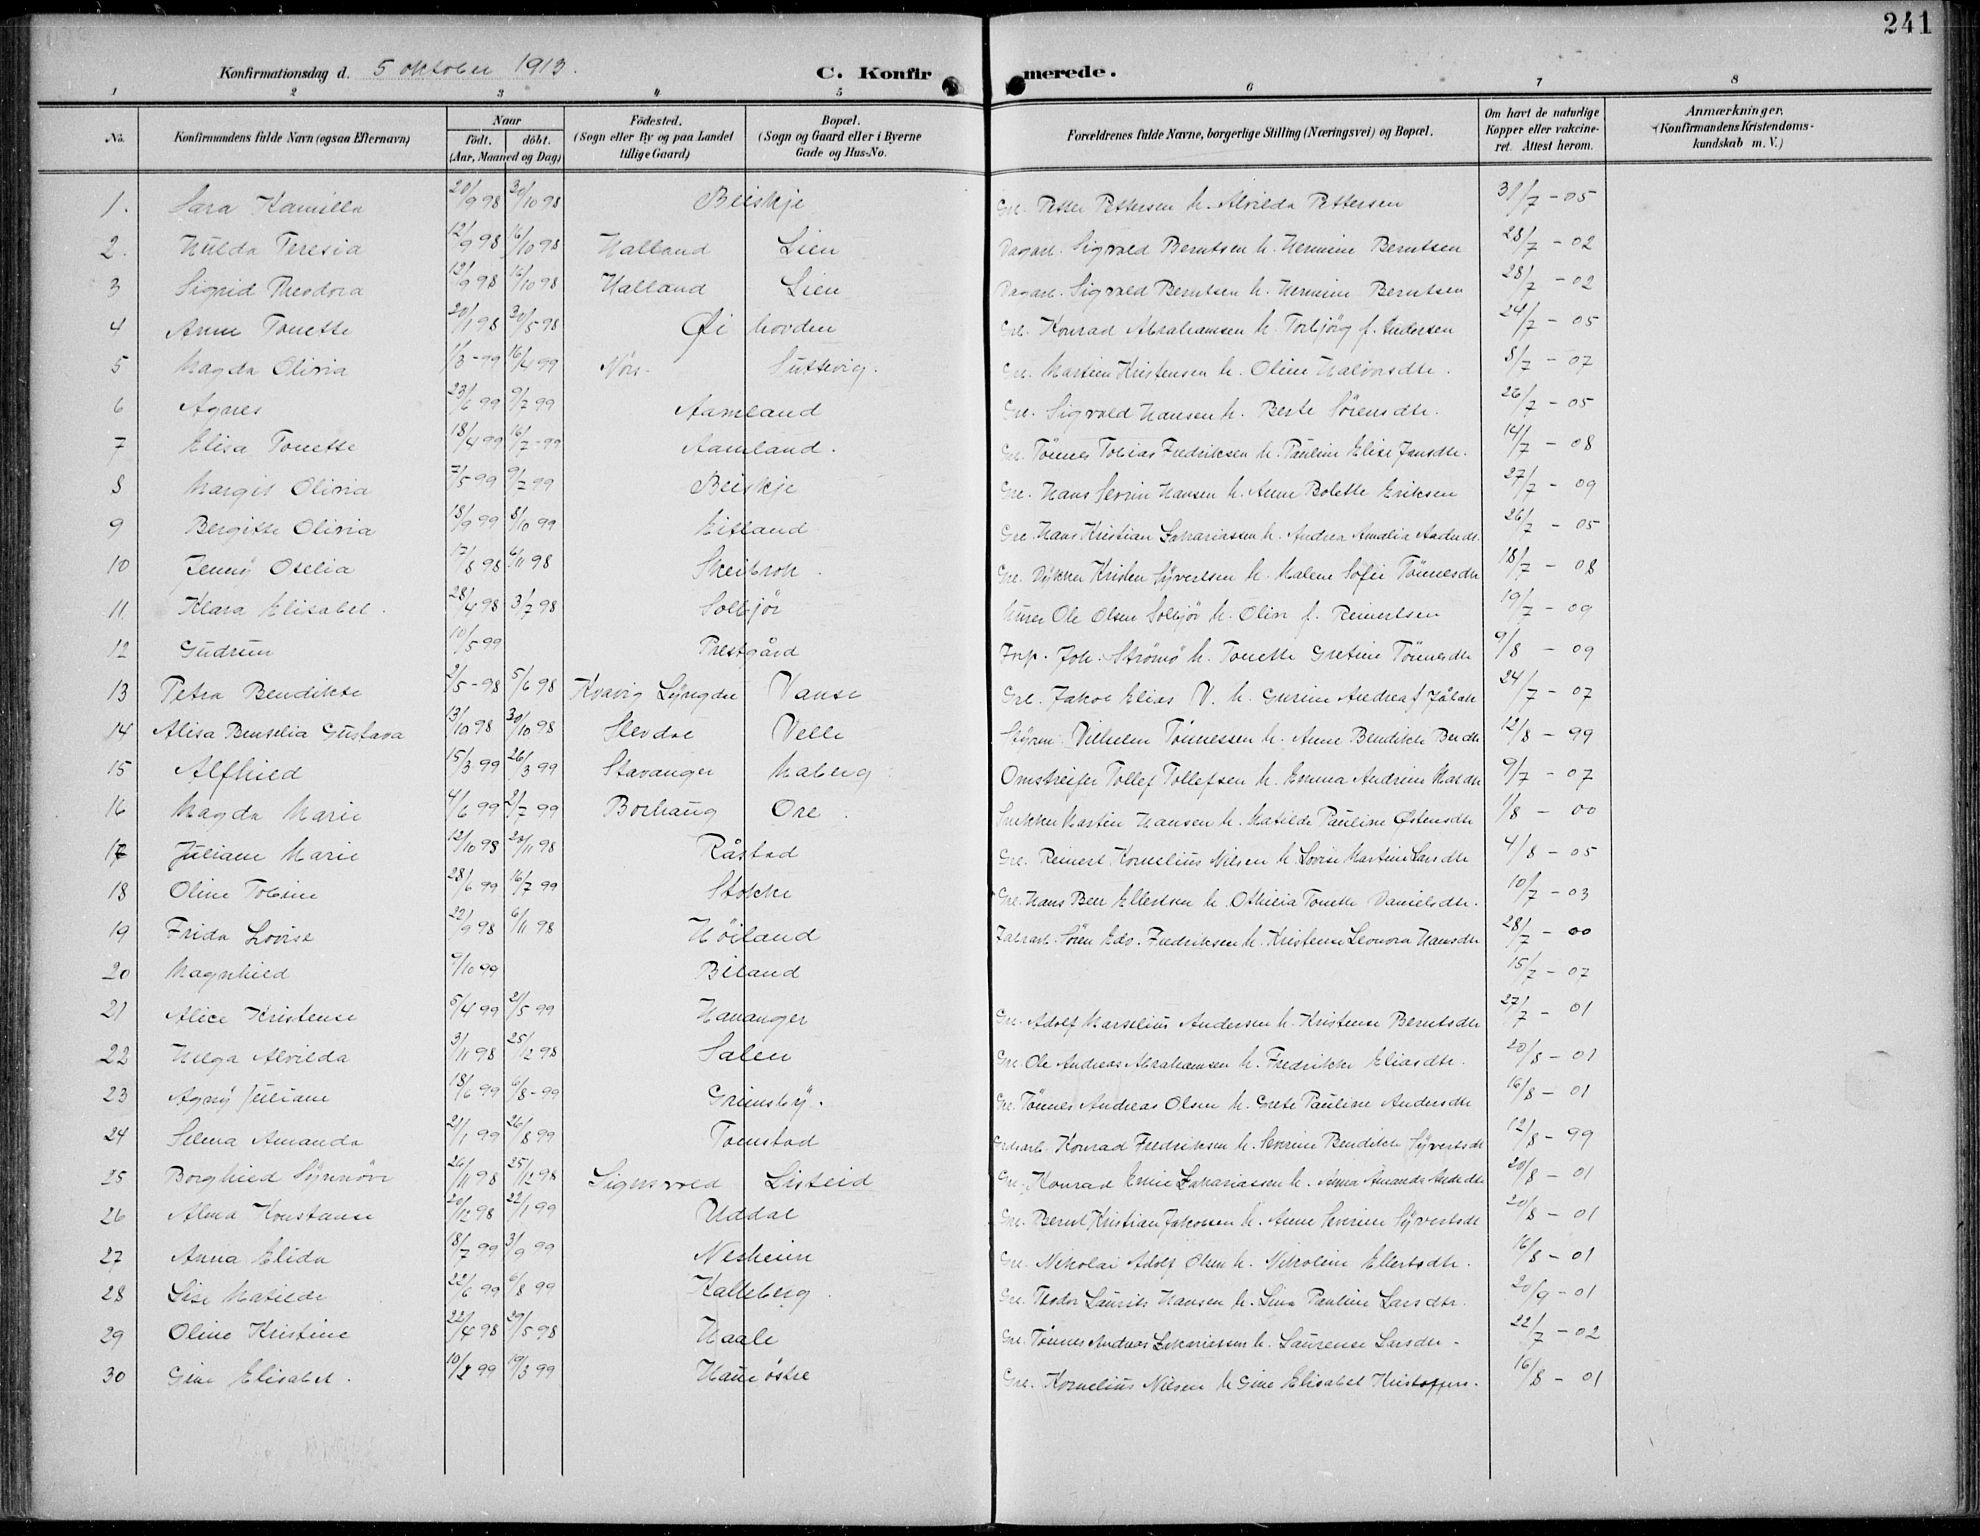 241
Konfirmationsdag d. 5 oktober 1913. C. Konfirmerede.
1 2 3 4 5 6 7 8
No. Konfirmandens fulde Navn (ogsaa Efternavn) Naar Födt. döbt. (Aar, Maaned og Dag) Födested. (Sogn eller By og paa Landet tillige Gaard) Bopæl. (Sogn og Gaard eller i Byerne Gade og Hus-No. Forældrenes fulde Navne, borgerlige Stilling (Næringsvei) og Bopæl. Om havt de naturlige Kopper eller vakcineret. Attest herom. Anmærkninger, (Konfirmandens Kristendomskundskab m. V.)
1. Sara Kamilla 20/9 98 30/10 98 Beiskje Grl. Petter Pettersen h. Alvilda Pettersen 31/7 - 05
2. Hulda Teresia 12/9 98 16/10 98 Halland Lien Dagarb. Sigvald Berntsen h. Hermine Berntsen 28/7 - 02
3 Sigrid Theodora 12/9 98 16/10 98 Halland Lien Dagarb. Sigvald Berntsen h. Hermine Berntsen 28/7 - 02
4 Anne Tonette 20/1 98 30/5 98 Øihovden Grl. Konrad Abrahamsen h. Torbjörg f. Andersen 24/7 - 05
5 Magda Olivia 1/3 - 99 16/4 99 Nör- Suttevig. Gre. Martin Kristensen h. Oline Halvorsdtr. 8/7 - 07
6 Agnes 23/6 99 9/7 99 Aamland Gre. Sigvald Hansen h. Berte Sörensdtr. 26/7 - 05
7 Elisa Tonette 18/4 99 16/7 - 99 Aamland. Gre. Tönnes Tobias Fredriksen h. Pauline Elise Jansdtr. 14/7 - 08
8 Margit Olivia 7/5 99 9/7 99 Beiskje Gre. Hans Severin Hansen h. Anne Bolette Eriksen 27/7 - 09
9 Bergitte Olivia 18/9 99 8/10 99 Eitland Gre. Hans Kristian Sakariassen h. Andrea Amalia 26/7 - 05
10 Jenny Oselia 17/8 98 6/11 98 Skeibrok. Gre. Dykker Kristen Syvertsen h. Malene Sofie Tönnesdtr 18/7 - 08
11. Klara Elisabet. 28/4 98 3/7 98 Solbjör Murer Ole Olsen Solbjör h. Olive f. Reinertsen 19/7 - 09
12 Gudrun 10/5 99 Prestgård Forp. Joh. Strömö h. Tonette Gretine Tönnesdtr 9/8 - 09
13 Petra Bendikte 2/5 - 98 5/6 98 Kvavig Lyngdal Vanse Gre. Jakob Elias V. h. Gurine Andrea f 24/7 - 07
14 Alisa Benselia Gustava 13/10 98 30/10 98 Slevdal Velle Styrm. Vilhelm Tönnessen h. Anne Bendikte Berdtr 12/8 - 99
15 Alfhild 15/3 99 26/3 99 Stavanger Maberg Omstreifer Tollef Tollefsen h. Emma Andrine 9/7 - 07
16 Magda Marie 4/6 99 2/7 99 Borhaug Ore. Snekker Martin Hansen h. Matilde Pauline Østensdtr 1/8 - 00
17 Juliane Marie 12/10 98 20/11 98 Råstad Gre. Reinert Kornelius Nilsen h Lovise Martine Larsdtr 4/8 - 05
18 Oline Tobine 28/6 99 16/7 99 Stokke Gre. Hans Beer Ellertsen h. Othilia Tonette Danielsdtr. 10/7 - 03
19 Frida Lovise 22/9 98 6/11 98 Höiland Fabrarb. Sören Edv. Fredriksen h. Kristense Leonora Hansdtr 28/7 - 00
20 Magnhild 9/10 99 Biland 15/7 - 07
21 Alice Kristense 5/4 99 21/5 99 Hananger Gre. Adolf Marselius Andersen h. Kristense Berntsdtr 27/7 - 01
22 Helga Alvilda 3/11 98 25/12 98 Salen Gre. Ole Andreas Abrahamsen h. Fredrikke Eliasdtr. 20/8 - 01
23 Agny Juliane 18/6 99 6/8 - 99 Grimsby. Gre. Tönnes Andreas Olsen h. Grete Pauline Andersdtr 16/8 - 01
24 Selma Amanda 21/1 99 26/8 99 Tomstad Konrad Fredriksen h. Severine Bendikte Syvertsdt 12/8 - 99
25 Borghild Synnöve 26/11 98 25/12 98 Sigersvold Listeid Gre. Konrad Emil Zakariassen h. Anna Amanda 20/8 - 01
26 Alma Konstanse 20/12 98 22/1 99 Uddal Gre. Bernt Kristian Jakobsen h. Anne Severine Syvertsdt 20/8 - 01
27 Anna Elida 18/7 99 3/9 99 Nesheim Gre. Nikolai Adolf Olsen h. Nikoline Ellertsdtr. 16/8 - 01
28 Lise Matilde 22/6 99 6/8 99 Kalleberg. Gre. Theodor Laurits Hansen h. Lina Pauline Larsdtr. 20/9 - 01
29 Oline Kristine 22/4 98 29/5 98 Haale Gre. Tönnes Andreas Zakariassen h. Laurense Larsdtr - 22/7 - 02
30 Gine Elisabet. 10/2 99 19/3 99 Haue östre Gre. Kornelius Nilsen h Gine Elisabet Kristoffers. 16/8 - 01